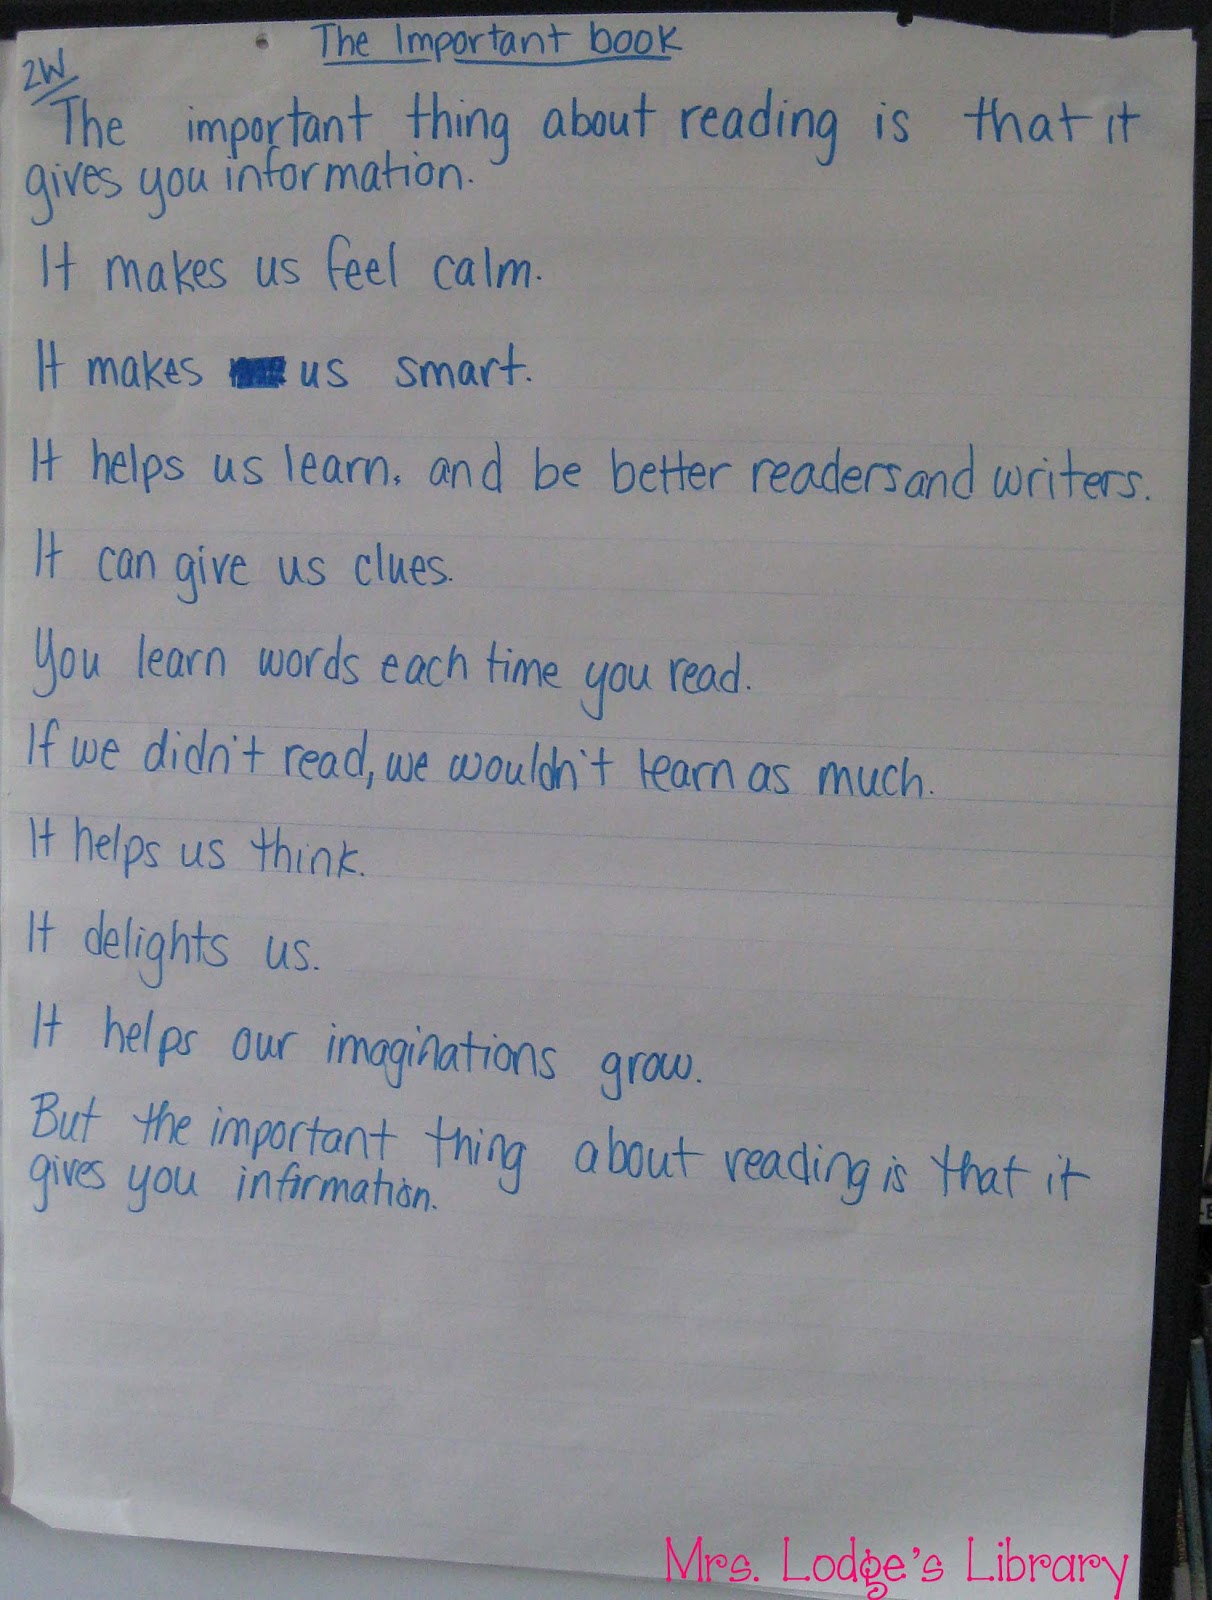 The Important book
2W
The important thing about reading is that it
gives you information.
It makes us feel calm.
It makes us smart.
It helps us learn. and be better readers and writers.
It can give us clues.
You learn words each time you read.
If we didn't read, we wouldn't learn as much.
It helps us think.
It delights us.
It helps our imaginations grow.
But the important thing about reading is that it
gives you information.
Mrs. Lodge's Library